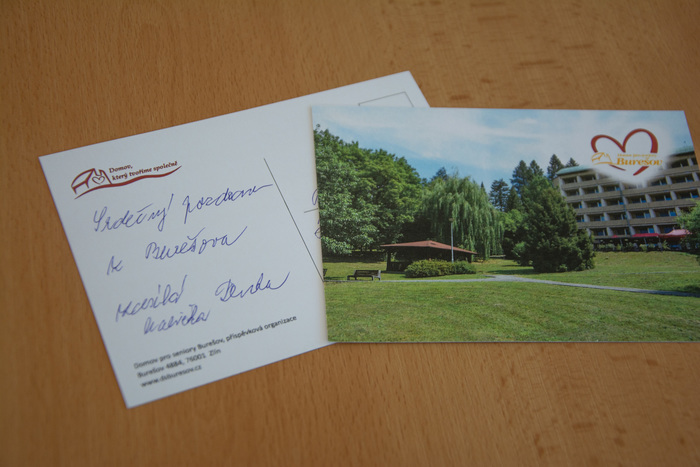 Domov,
který tvoříme společně
Srdečný pozdrav
z Burešova
posílá
babička
Domov pro seniory Burešov, příspěvková organizace
Burešov 4884, 76001 Zlín
www.dsburesov.cz
Burešov